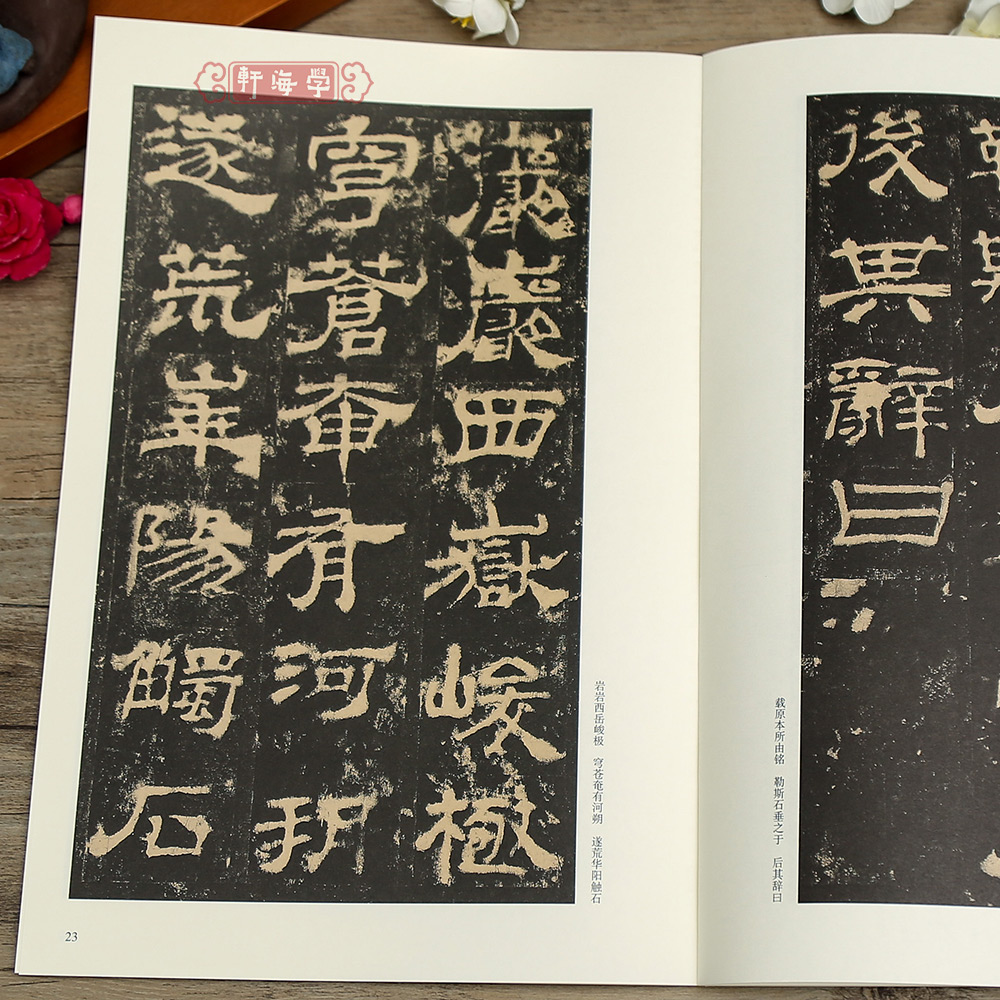 學海軒
後其辭曰
载原本所由铭 勒斯石垂之于 后其辞曰
巖巖西嶽峻極
穹蒼奄有河朔
遂荒華陽觸石
岩岩西岳峻极 穹苍奄有河朔 遂荒华阳触石
23